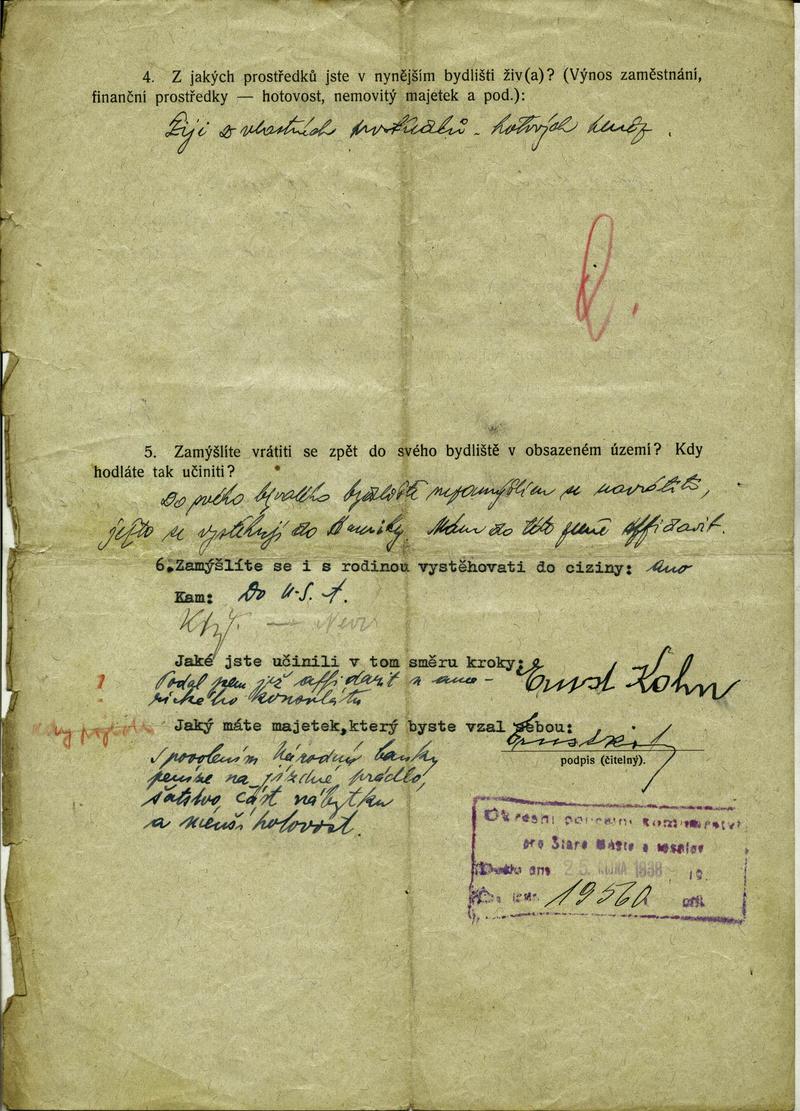 4. Z jakých prostředků jste v nynějším bydlišti živ(a)? (Výnos zaměstnání,
finanční prostředky — hotovost, nemovitý majetek a pod.):
Žiji z vlastních prostředků - hotových peněz.
5. Zamýšlíte vrátiti se zpět do svého bydliště v obsazeném území? Kdy
hodláte tak učiniti?
Do svého bývalého bydliště nezamýšlím se navrátiti,
ježto se vystěhuji do Ameriky. Mám do této země affidavit.
6. Zamýšlíte se i s rodinou vystěhovati do ciziny: ano
Kam: Do U.S.A.
Když. — Neví
Jaké jste učinili v tom směru kroky:
Podal jsem již affidavit u ame-
rického konsulátu
Ernst Kohn
Jaký máte majetek, který byste vzal sebou:
S povolením Národní banky
peníze na jízdné, prádlo,
šatstvo, část nábytku
a menší hotovost.
podpis (čitelný).
Okresní policejní komisařství
pro Staré Město a Josefov
Došlo dne 25. ŘÍJNA 1938 19
19560 příl.